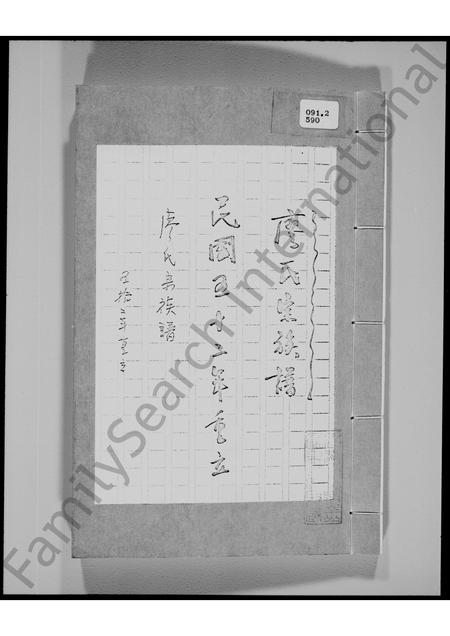 091.2
590
廖氏宗族譜
民國五十二年重立
廖氏宗族譜
五拾二年重立
FamilySearch International